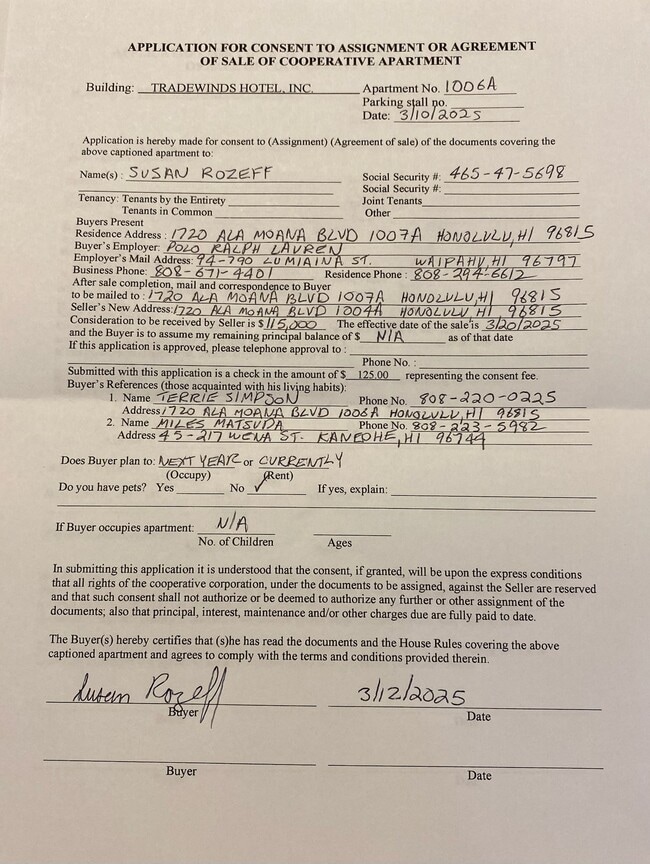 APPLICATION FOR CONSENT TO ASSIGNMENT OR AGREEMENT
OF SALE OF COOPERATIVE APARTMENT
Building: TRADEWINDS HOTEL, INC. Apartment No. 1006A
Parking stall no.
Date: 3/10/2025
Application is hereby made for consent to (Assignment) (Agreement of sale) of the documents covering the
above captioned apartment to:
Name(s) : SUSAN ROZEFF Social Security #: 465-47-5698
Social Security #:
Tenancy: Tenants by the Entirety Joint Tenants
Tenants in Common Other
Buyers Present
Residence Address : 1720 ALA MOANA BLVD 1007A HONOLULU, HI 96815
Buyer's Employer: POLO RALPH LAUREN
Employer's Mail Address: 94-790 LUMIAINA ST. WAIPAHU, HI 96797
Business Phone: 808-671-4401 Residence Phone : 808-294-6612
After sale completion, mail and correspondence to Buyer
to be mailed to : 1720 ALA MOANA BLVD 1007A HONOLULU, HI 96815
Seller's New Address: 1720 ALA MOANA BLVD 1004A HONOLULU, HI 96815
Consideration to be received by Seller is $ 115,000 The effective date of the sale is 3/20/2025
and the Buyer is to assume my remaining principal balance of $ N/A as of that date
If this application is approved, please telephone approval to :
Phone No. :
Submitted with this application is a check in the amount of $ 125.00 representing the consent fee.
Buyer's References (those acquainted with his living habits):
1. Name TERRIE SIMPSON Phone No. 808-220-0225
Address 1720 ALA MOANA BLVD 1006A HONOLULU, HI 96815
2. Name MILES MATSUDA Phone No. 808-223-5982
Address 45-217 WENA ST. KANEOHE, HI 96744
Does Buyer plan to: NEXT YEAR or CURRENTLY
(Occupy) (Rent)
Do you have pets? Yes No ✓ If yes, explain:
If Buyer occupies apartment: N/A
No. of Children Ages
In submitting this application it is understood that the consent, if granted, will be upon the express conditions
that all rights of the cooperative corporation, under the documents to be assigned, against the Seller are reserved
and that such consent shall not authorize or be deemed to authorize any further or other assignment of the
documents; also that principal, interest, maintenance and/or other charges due are fully paid to date.
The Buyer(s) hereby certifies that (s)he has read the documents and the House Rules covering the above
captioned apartment and agrees to comply with the terms and conditions provided therein.
Susan Rozeff 3/12/2025
Buyer Date
Buyer Date